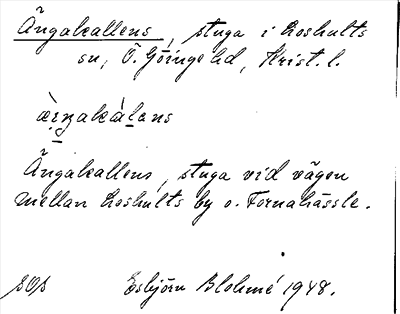 Ängakallens, stuga i Loshults
sn, Ö. Göinge hd, Krist. l.
Ängakallens, stuga vid vägen
mellan Loshults by o. Fornahässle.
Esbjörn Blohmé 1948.